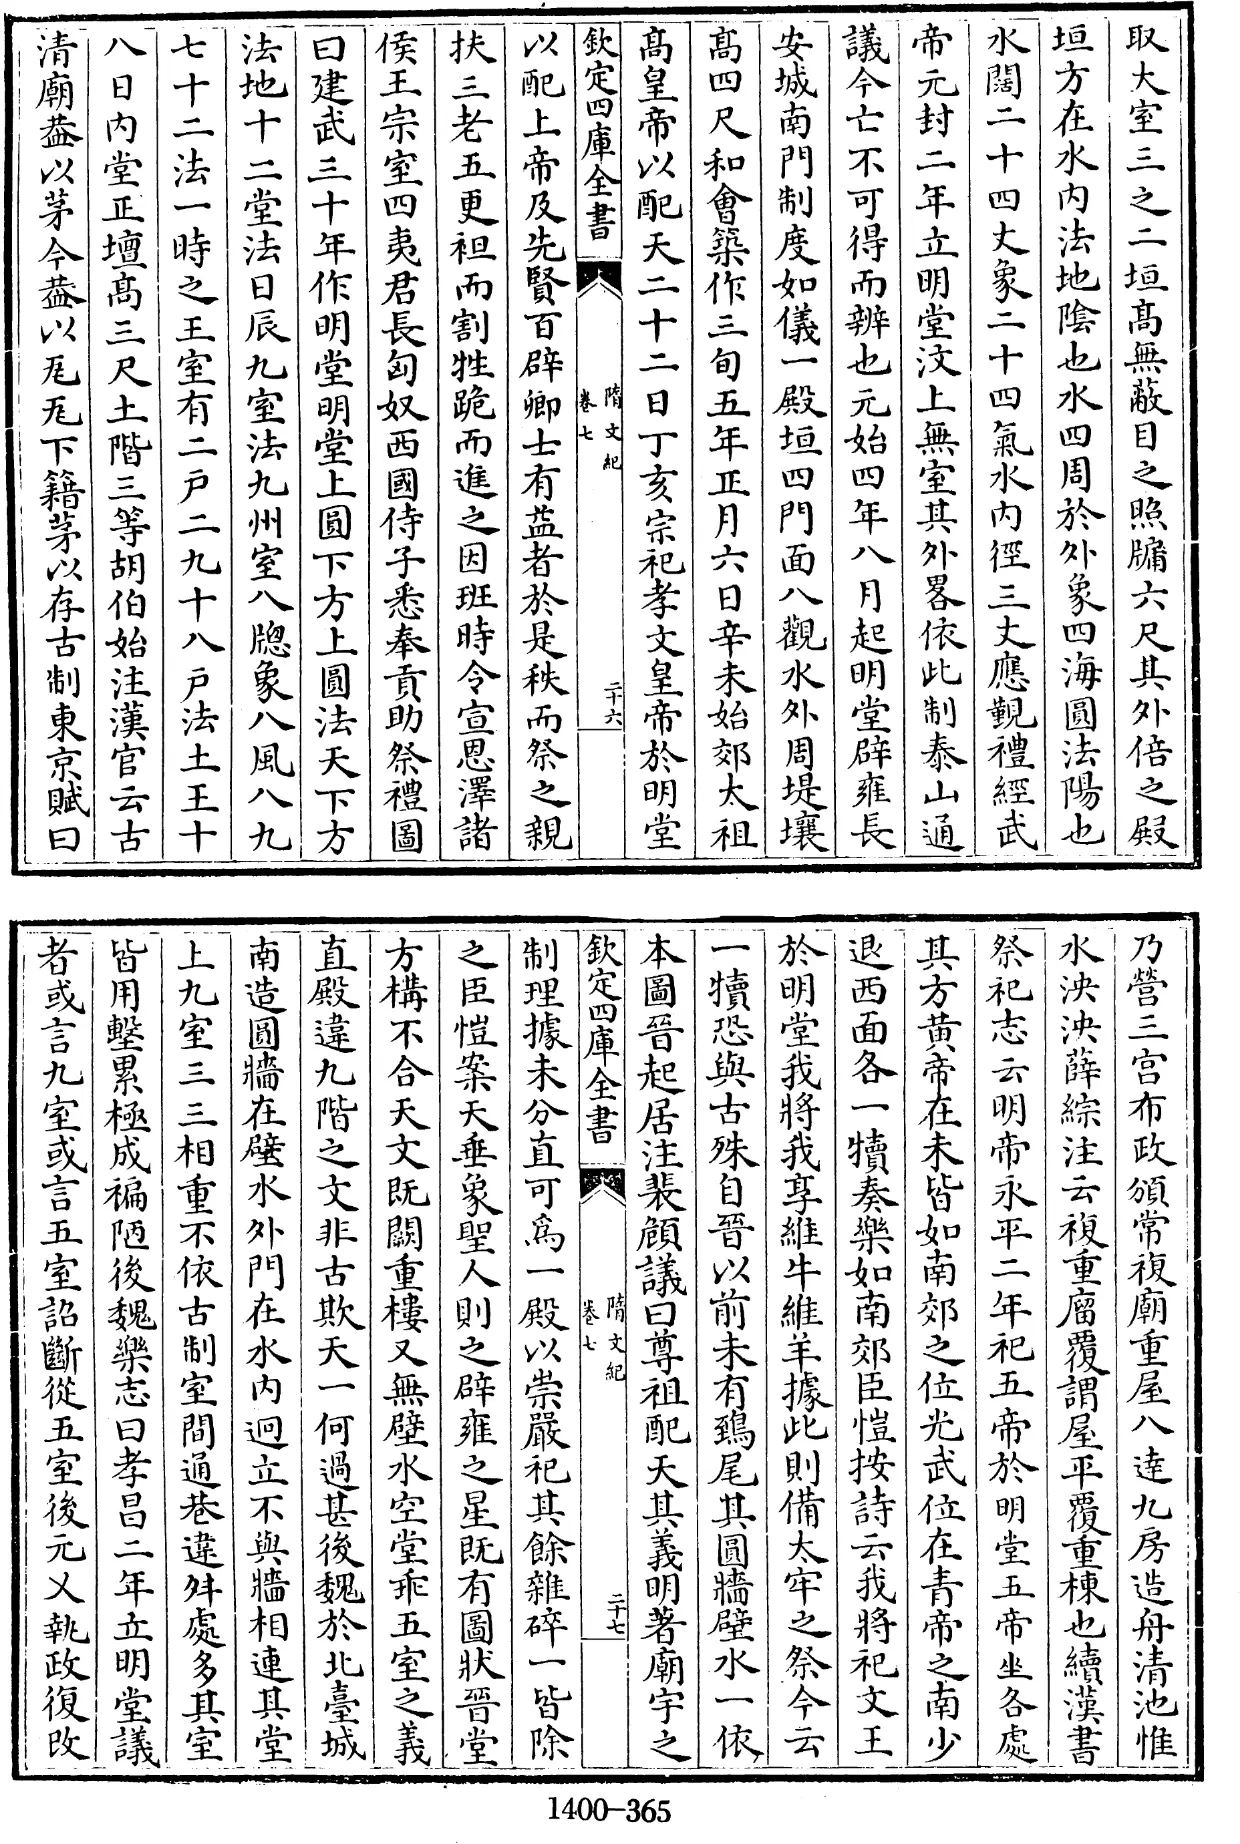 取大室三之二垣髙無蔽目之照牖六尺其外倍之殿
垣方在水内法地隂也水四周於外象四海圓法陽也
水闊二十四丈象二十四氣水内徑三丈應覲禮經武
帝元封二年立明堂汶上無室其外畧依此制泰山通
議今亡不可得而辨也元始四年八月起明堂辟雍長
安城南門制度如儀一殿垣四門面八觀水外周堤壤
髙四尺和㑹築作三旬五年正月六日辛未始郊太祖
髙皇帝以配天二十二日丁亥宗祀孝文皇帝於明堂
欽定四庫全書
隋文紀
卷七
二十六
以配上帝及先賢百辟卿士有益者於是秩而祭之親
扶三老五更袒而割牲跪而進之因班時令宣恩澤諸
侯王宗室四夷君長匈奴西國侍子悉奉貢助祭禮圖
曰建武三十年作明堂明堂上圓下方上圓法天下方
法地十二堂法日辰九室法九州室八牕象八風八九
七十二法一時之王室有二戸二九十八戸法土王十
八日内堂正壇髙三尺土階三等胡伯始注漢官云古
清廟葢以茅今葢以瓦瓦下籍茅以存古制東京賦曰
乃營三宫布政頒常複廟重屋八達九房造舟清池惟
水泱泱薛綜注云複重廇覆謂屋平覆重棟也續漢書
祭祀志云明帝永平二年祀五帝於明堂五帝坐各處
其方黄帝在未皆如南郊之位光武位在青帝之南少
退西面各一犢奏樂如南郊臣愷按詩云我將祀文王
於明堂我將我享維牛維羊據此則備太牢之祭今云
一犢恐與古殊自晉以前未有鵄尾其圓牆壁水一依
本圖晉起居注裴頠議曰尊祖配天其義明著廟宇之
欽定四庫全書
隋文紀
卷七
二十七
制理據未分直可為一殿以崇嚴祀其餘雜碎一皆除
之臣愷案天垂象聖人則之辟雍之星既有圖狀晉堂
方構不合天文既闕重樓又無壁水空堂乖五室之義
直殿違九階之文非古欺天一何過甚後魏於北臺城
南造圓牆在壁水外門在水内迥立不與牆相連其堂
上九室三三相重不依古制室間通巷違舛處多其室
皆用墼累極成褊陋後魏樂志曰孝昌二年立明堂議
者或言九室或言五室詔斷從五室後元乂執政復改
1400-365